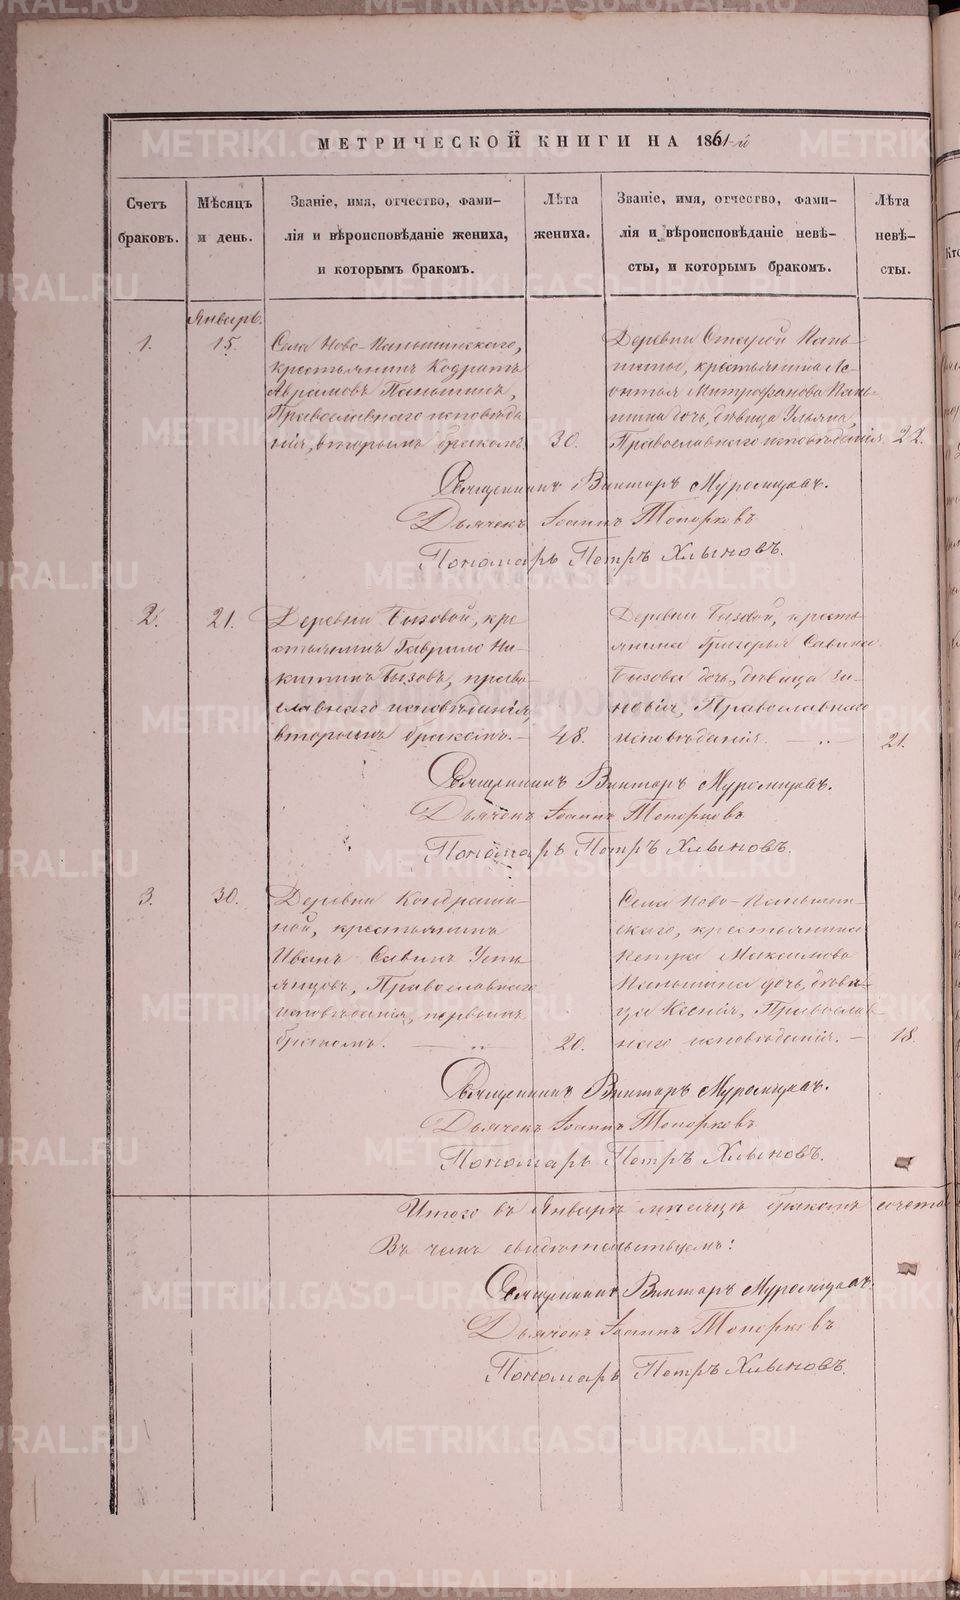 МЕТРИЧЕСКОЙ КНИГИ НА 1861-й
Счетъ браковъ.
Мѣсяцъ и день.
Званіе, имя, отчество, фами-
лія и вѣроисповѣданіе жениха,
и которымъ бракомъ.
Лѣта жениха.
Званіе, имя, отчество, фами-
лія и вѣроисповѣданіе невѣ-
сты, и которымъ бракомъ.
Лѣта невѣ-
сты.
Январь.
1.
15.
Села Ново-Паньшинскаго,
крестьянинъ Кодратъ
Авраамовъ Паньшинъ,
Православнаго исповѣда
нія, вторымъ бракомъ.
30.
Деревни Старой Пань-
шины, крестьянина Ле-
онтья Митрофанова Пань-
шина дочь, дѣвица Ульяна,
Православнаго исповѣданія.
22.
Священникъ Викторъ
Дьячекъ Іоаннъ Топорковъ
Пономарь Петръ Хлыновъ.
2.
21.
Деревни Бызовой, кре
стьянинъ Гаврило Ни-
китинъ Бызовъ, право
славнаго исповѣданія,
вторымъ бракомъ.
48.
Деревни Бызовой, кресть
янина Григорья Савина
Бызова дочь, дѣвица Зи-
новія, Православнаго
исповѣданія.
21.
Священникъ Викторъ
Дьячекъ Іоаннъ Топорковъ
Пономарь Петръ Хлыновъ.
3.
30.
Деревни Кондраши-
ной, крестьянинъ
Иванъ Савинъ Усть
янцовъ, Православнаго
исповѣданія, первымъ
бракомъ.
20.
Села Ново-Паньшин-
скаго, крестьянина
Петра Максимова
Паньшина дочь, дѣви-
ца Ксенія, Православ
наго исповѣданія.
18.
Священникъ Викторъ
Дьячекъ Іоаннъ Топорковъ
Пономарь Петръ Хлыновъ.
Итого въ Январѣ мѣсяцѣ бракомъ сочета
Въ чемъ свидѣтельствуемъ:
Священникъ Викторъ
Дьячекъ Іоаннъ Топорковъ
Пономарь Петръ Хлыновъ.
METRIKI.GASO-URAL.RU